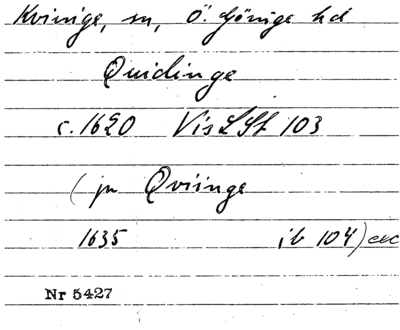 Kvinge, sn, Ö. Göinge hd
Quidinge
c. 1620 VisLSt 103
(jn Qviinge
1635 ib 104) etc
Nr 5427